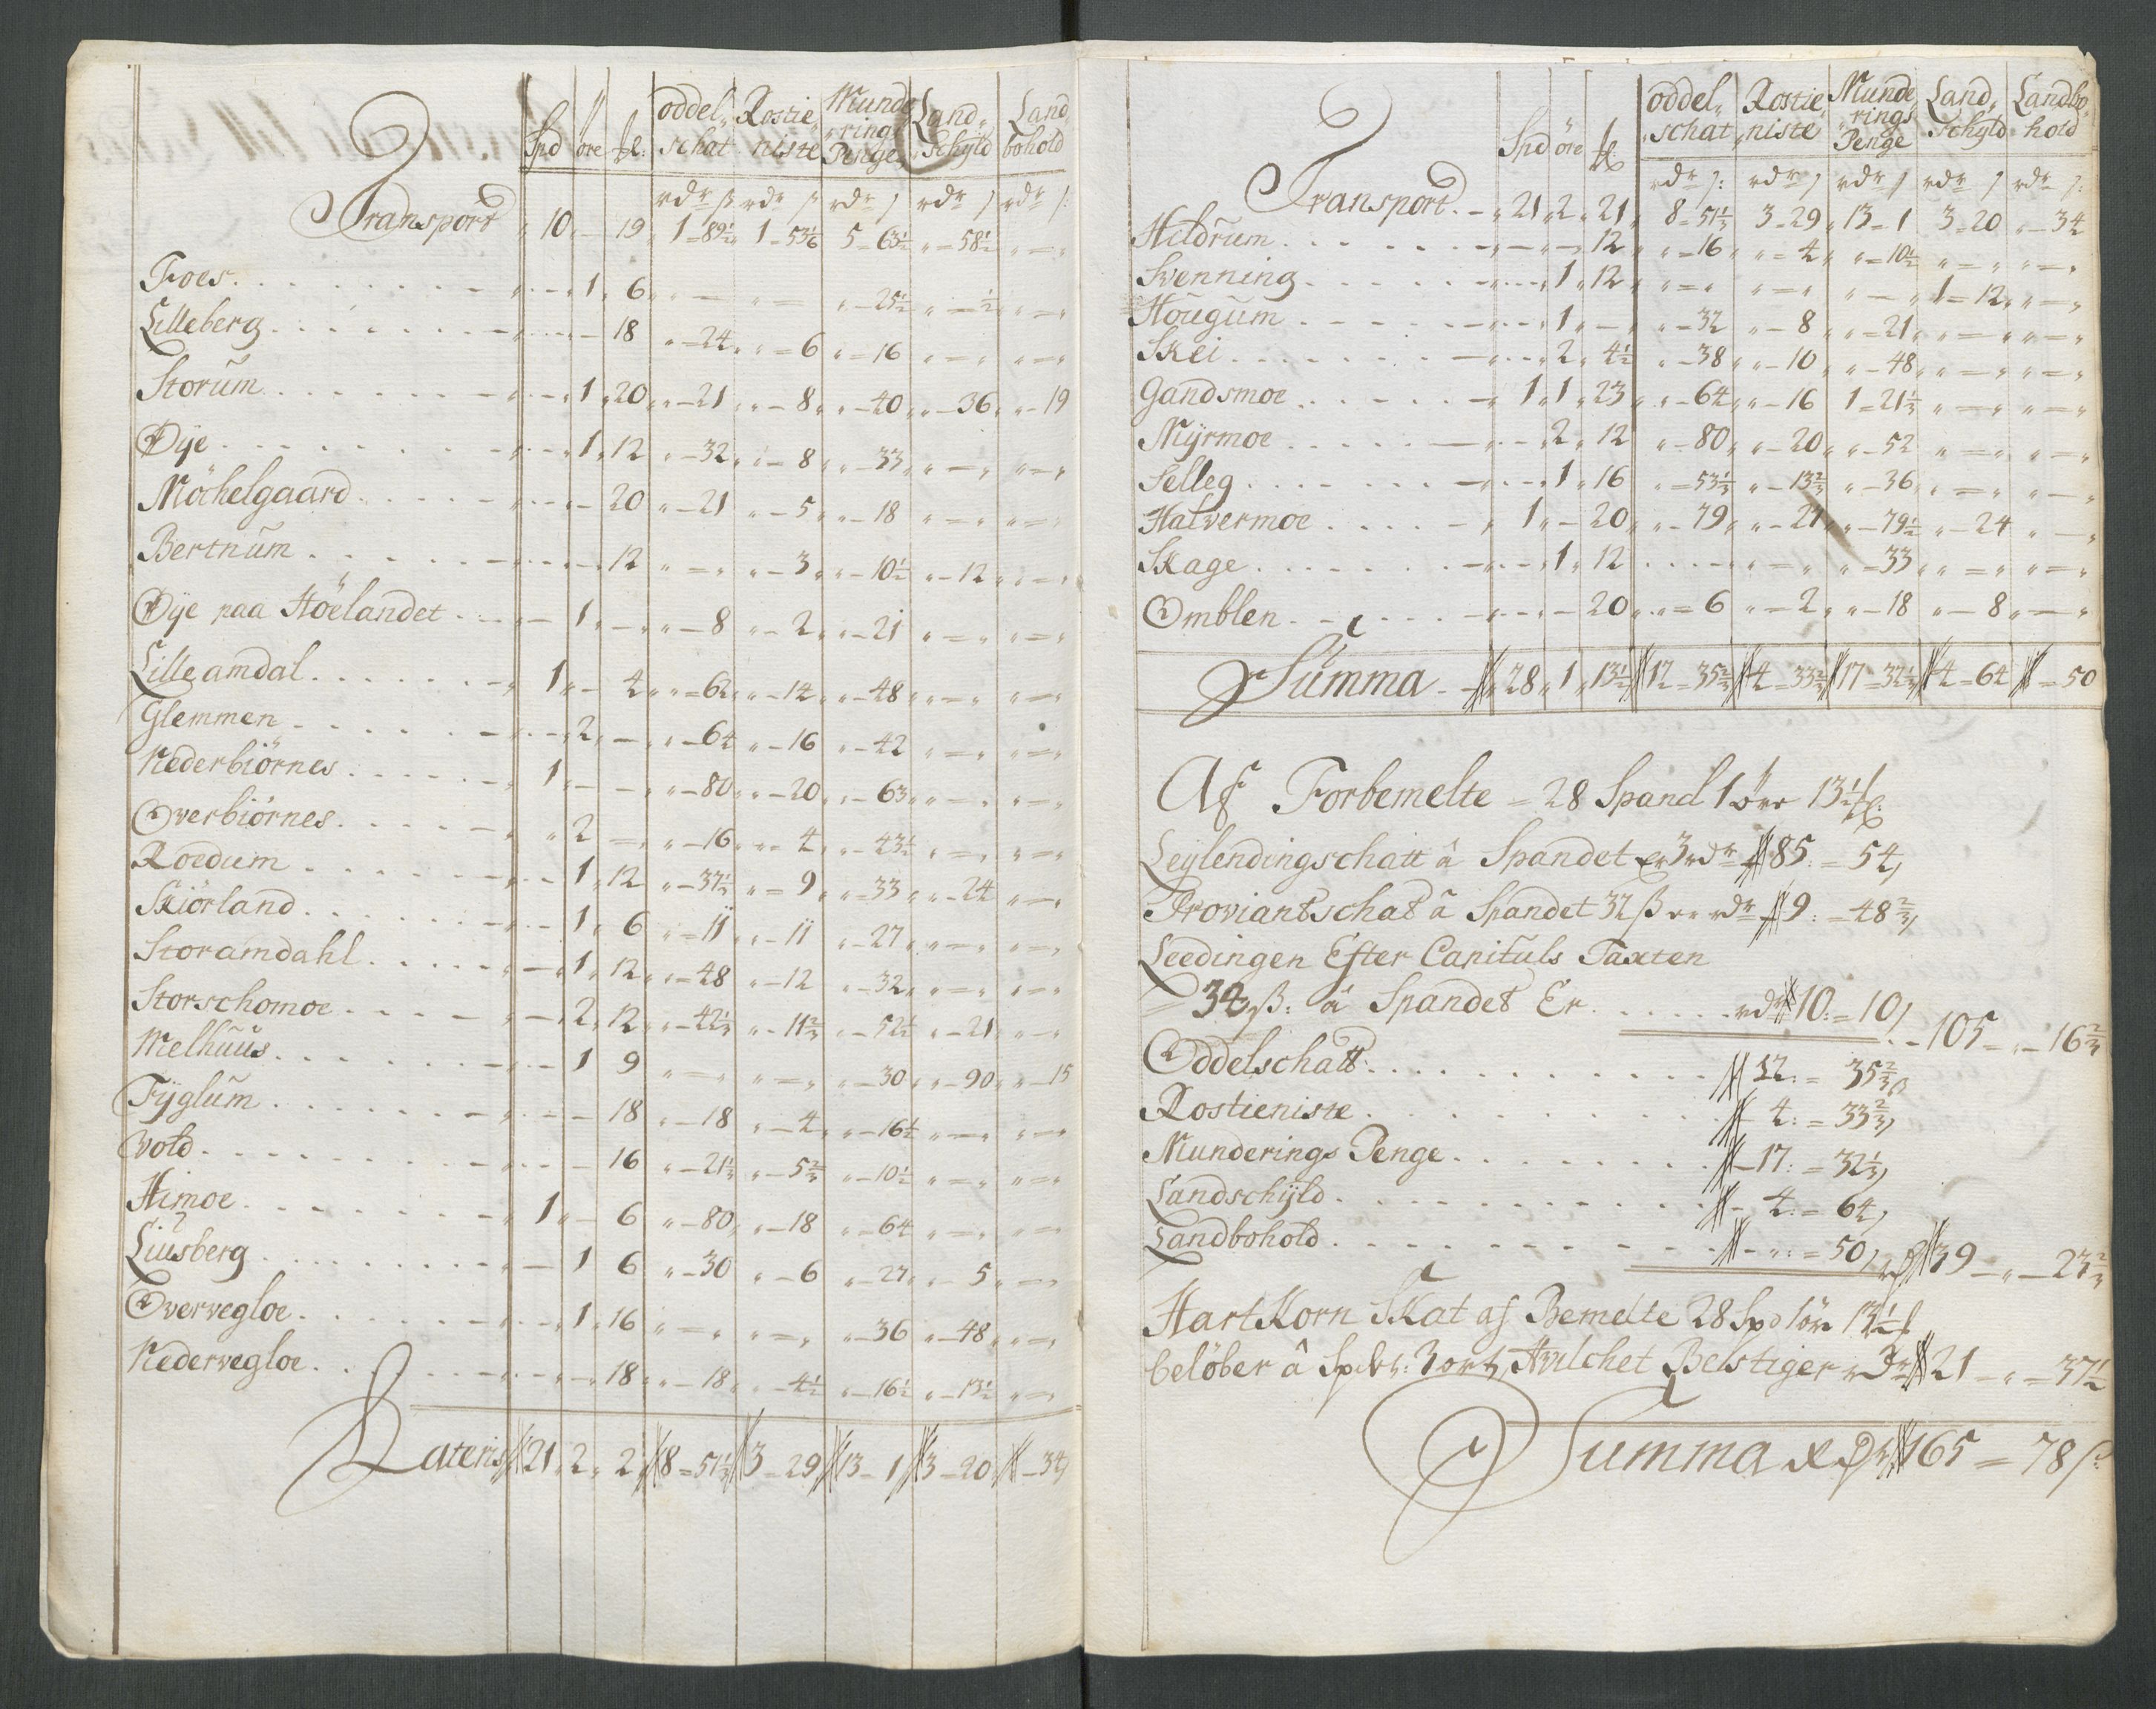 Spd öre ℔: oddel„ schat Rostie„ niste Munde„ rings Penge Land„ Schyld Land„ bohold
rdr ß rdr ß rdr ß rdr ß rdr ß:
Transport „ 10 „ – 19 „ 1=89½ „ 1=53⅙ 5=63½ „ – 58½ „ = „
Foes. „ – „ 1 „ 6 „ „ = „ = „ – 25½ „ – ½ „ = „
Lilleberg „ – „ – 18 „ = 24 „ „ = 6 „ = 16 „ = „ „ = „
Storum „ – „ 1 „ 20 „ „ – 21 „ „ – 8 „ „ – 40 „ „ – 36 „ „ – 19
Øÿe „ – „ 1 „ 12 „ – 32 „ „ – 8 „ „ – 33 „ „ – „ „ = „
Möchelgaard „ – „ – 20 „ – 21 „ – 5 „ „ – 18 „ = „ „ = „
Bertnum „ – „ – 12 „ = „ „ – 3 „ „ – 10½ „ – 12 „ „ = „
Øÿe paa Höelandet „ – 1 „ – „ „ – 8 „ – 2 „ „ – 21 „ = „ „ = „
Lille amdal „ 1 „ – 4 „ „ = 62 „ „ – 14 „ – 48 „ „ = „ „ = „
Glemmen „ – „ 2 „ – „ „ – 64 „ – 16 „ – 42 „ = „ „ = „
Nederbiörnes „ 1 „ – – „ „ – 80 „ „ – 20 „ „ – 63 „ „ = „ „ = „
Overbiörnes „ „ 2 – „ – 16 „ „ – 4 „ „ – 43½ „ = „ „ = „
Roedum „ – 1 „ 12 „ – 37½ „ = 9 „ = 33 „ „ – 24 „ = „
Skiörland „ – 1 „ 6 „ = 11 „ – 11 „ – 27 „ „ = „ „ = „
Storamdahl „ – „ 1 „ 12 „ „ – 48 „ – 12 „ – 32 „ „ = „ „ = „
Storschomoe „ – „ 2 „ 12 „ „ – 42⅓ „ – 11⅔ „ – 52½ „ – 21 „ „ = „
Melhuus „ – 1 9 „ = „ „ = „ „ – 30 „ „ – 90 „ „ – 15
Fÿglum „ – „ – 18 „ – 18 „ – 4 „ „ – 16½ „ = „ „ = „
Vold „ – „ – 16 „ – 21⅓ „ – 5⅔ „ – 10½ „ = „ „ = „
Himoe „ 1 „ – 6 „ – 80 „ „ – 18 „ – 64 „ = „ „ = „
Liusberg „ – 1 6 „ – 30 „ – 6 „ – 27 „ „ – 5 „ „ = „
Overvegloe „ – „ 1 „ 16 „ = „ „ = „ „ – 36 „ – 48 „ „ = „
Nedervegloe „ – „ – 18 „ „ – 18 „ „ – 4½ „ – 16½ „ – 13½ „ = „
Lateris 21 „ 2 „ 2 8 = 51⅓ 3 – 29 13 – 1 3 – 20 – 34
Spd öre ℔ oddel„ schat Rostie„ niste Munde„ rings Penge Land„ Schyld Landbo„ hold
rdr ß: rdr ß rdr ß rdr ß rdr ß:
Transport „ 21 „ 2 „ 21 „ 8 = 51⅓ 3 – 29 „ 13 – 1 3 = 20 „ – 34
Hildrum „ – „ – 12 „ „ = 16 „ = 4 „ „ = 10½ „ = „ „ = „
Svenning „ – „ 1 „ 12 „ „ = „ „ = „ „ – „ 1 = 12 „ „ = „
Hougum „ – „ 1 „ – „ „ – 32 „ – 8 „ „ = 21 „ „ = „ „ = „
Skei „ – „ 2 „ 4½ „ – 38 „ „ – 10 „ „ – 48 „ „ = „ „ = „
Gandsmoe „ 1 „ 1 „ 23 „ „ – 64 „ „ – 16 1 = 21⅓ „ = „ „ = „
Mÿrmoe „ – „ 2 „ 12 „ – 80 „ „ – 20 „ „ – 52 „ = „ „ = „
Selleg „ – „ 1 „ 16 „ = 53⅓ „ – 13⅔ „ – 36 „ = „ „ – „
Halvermoe „ 1 „ – 20 „ „ – 79 „ „ – 21 „ „ – 79½ „ – 24 „ – „
Skage „ – „ 1 „ 12 „ = „ „ = 33 „ „ = „ „ = „
Omblen „ – „ – 20 „ „ = 6 „ = 2 „ „ – 18 „ – 8 „ – „
Summa 28 „ 1 „ 13½ 12 = 35⅔ 4 = 33⅔ 17 = 32⅓ 4 = 64 = 50
Af Forbemelte = 28 Spand 1 öre 13½ ℔
Leÿlendingschatt â Spandet er 3 rdr 85. = 54
Proviantschat â Spandet 32 ß er rdr 9: = 48⅔
Leedingen Efter Capituls Taxten
34 ß: â Spandet Er rdr 10: = 10 – 105 – „ – 16⅔
Oddelschatt 12: = 35⅔
Rostieniste 4: = 33⅔
Munderings Penge 17: = 32⅓
Landschÿld 4: = 64
Landbohold „: = 50 rdr 39 – „ – 23⅔
Hart Korn Skat af Bemelte 28 Spd 1 ör 13½
belöber â Spdr: 3 ort, Hvilchet Belstiger rdr 21 – „ = 37½
Summa rdr 165 = 78 ß: